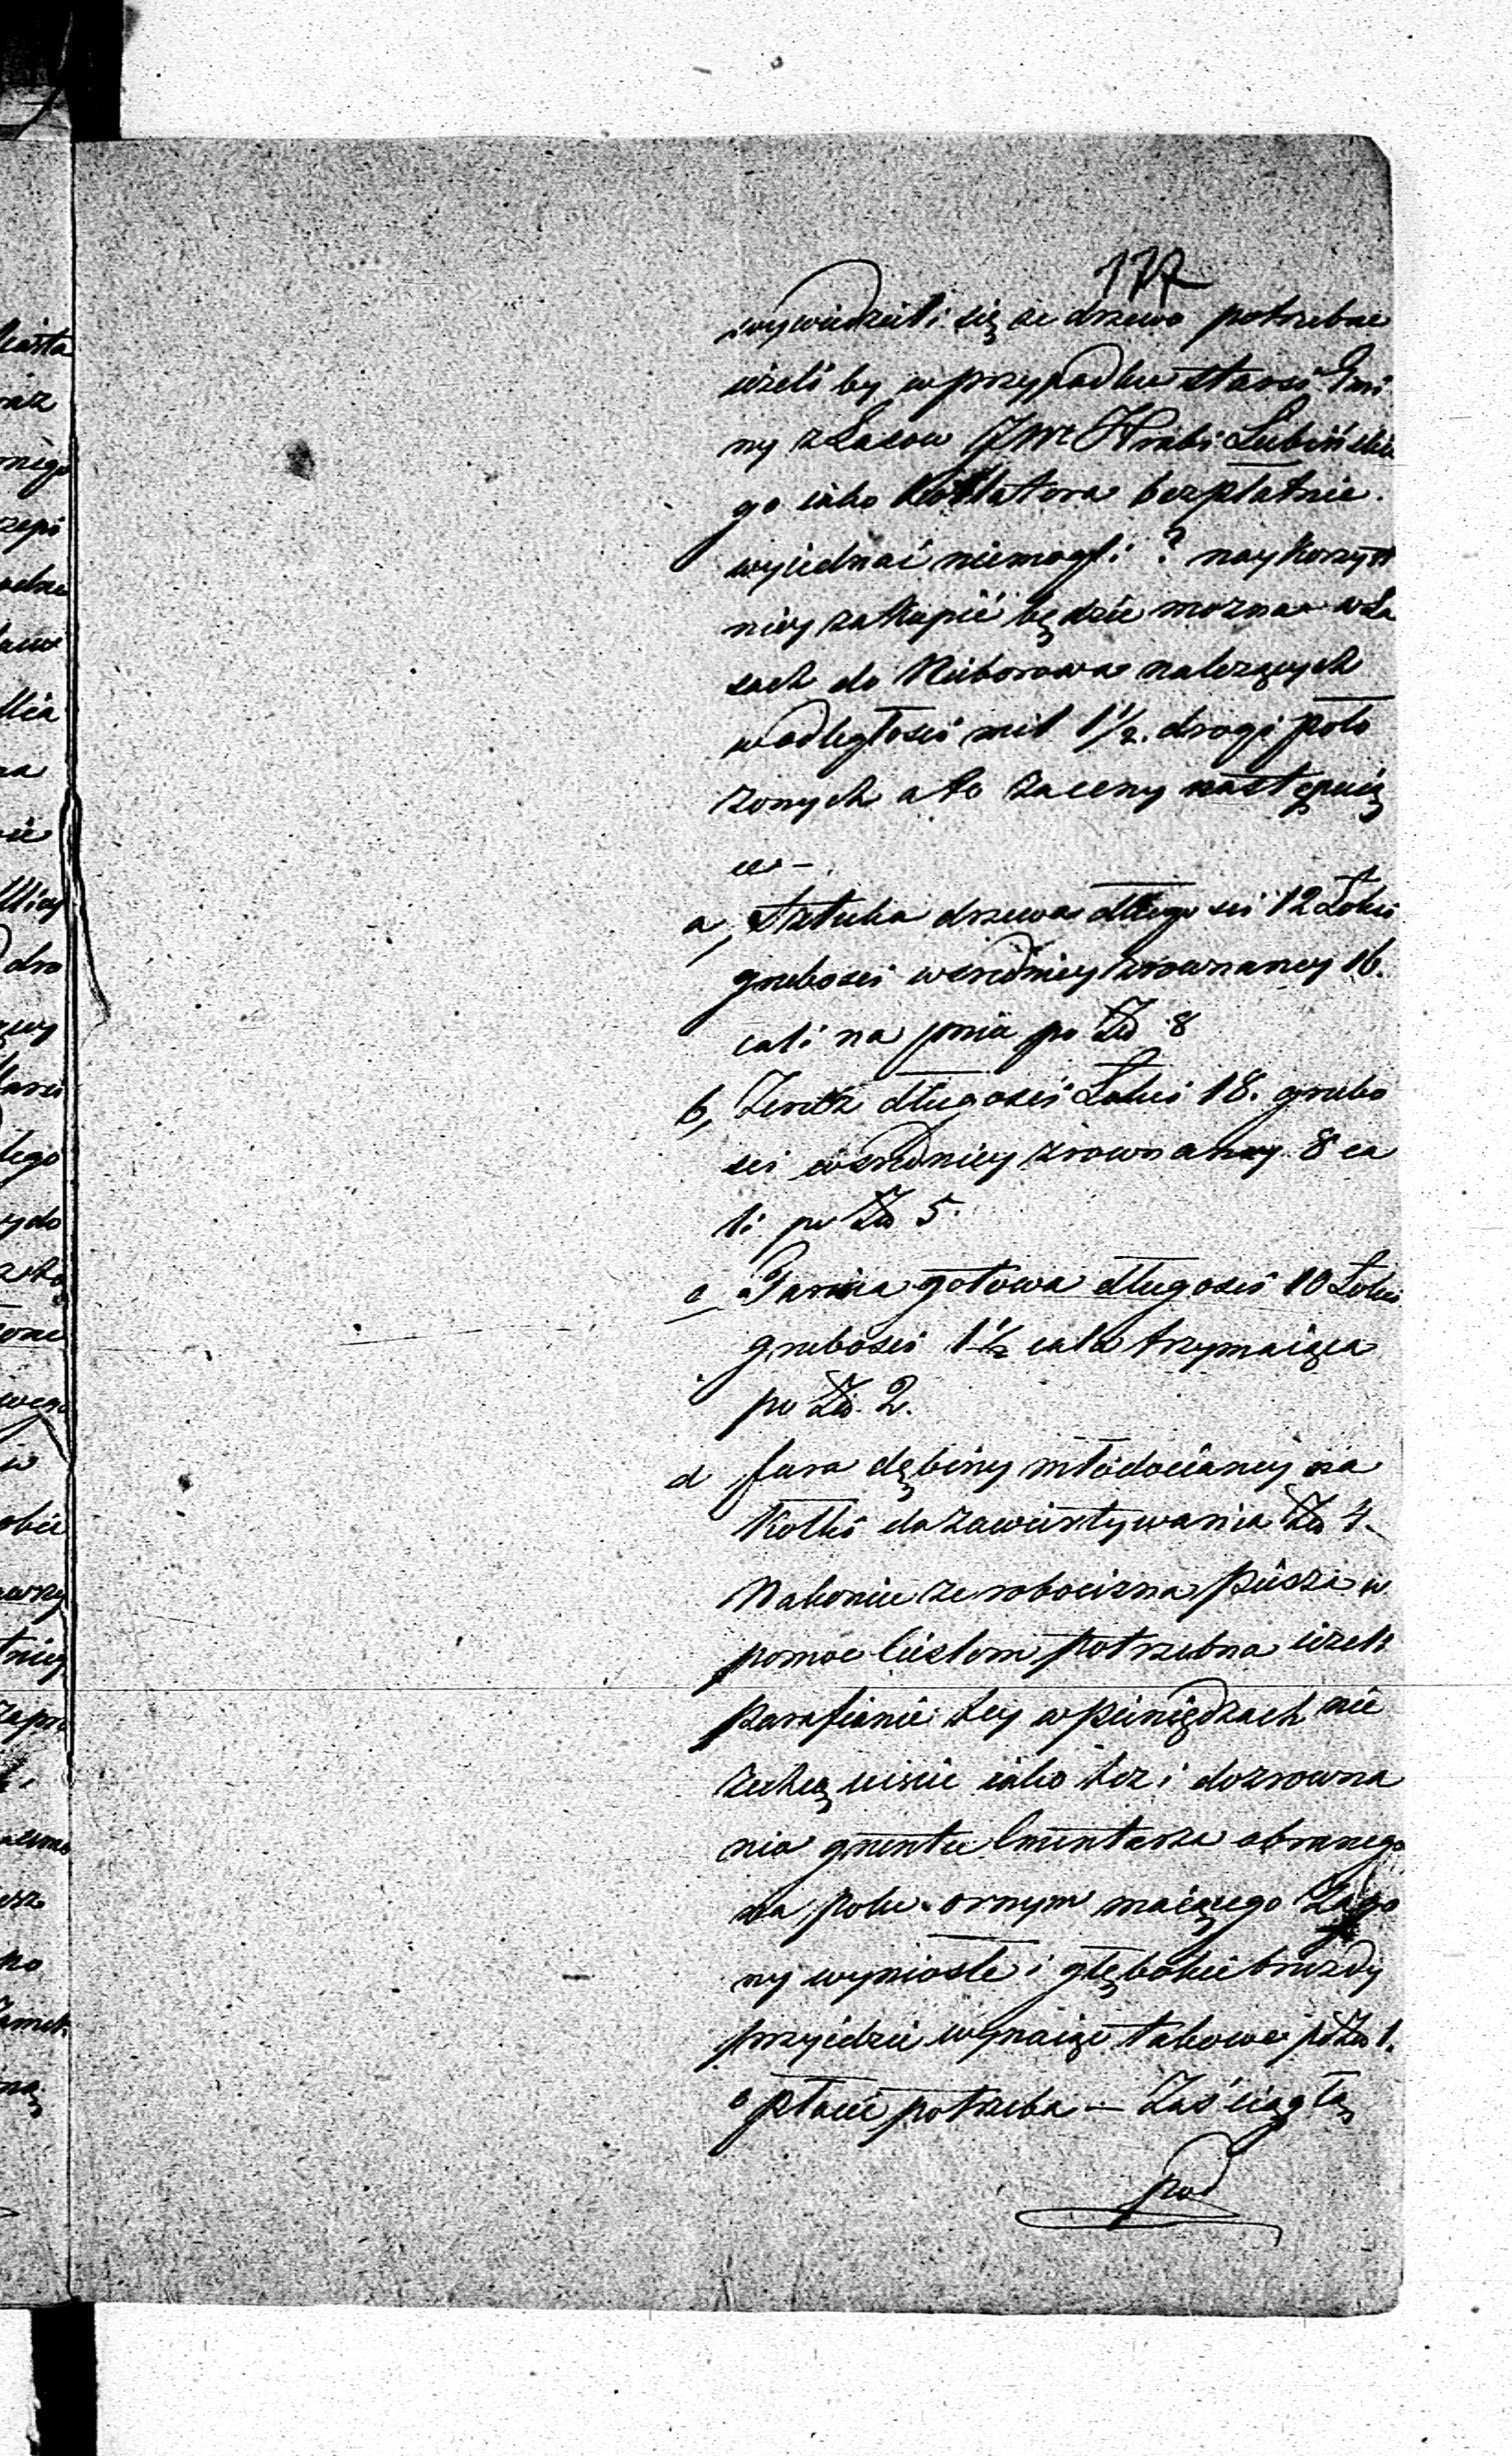 177
wywiedzieli się że drzewo potrzebne
ieżeli by w przypadku starsi Gmi
ny z Lasow JWo Hrabi Lubińskie
go iako Kollatora bezpłatnie
wyiednać niemogli ? naykorzyst
niey zakupić będzie mozna w La
sach do Nieborowa należących
w odległości mil 1½. drogi poło
zonych a to za ceny następuią
ce –
a, Sztuka drzewa długości 12 Łokci
grubości w sredniey zrownaney 16.
cali na pniu po Zło 8
b, Zerdz długości Łokci 18. grubo
sci w sredniey zrownaney 8 ca
li po Zło 5.
c, Tarcica gotowa długości 10 Łokci
grubości 1½ cala trzymaiąca
po Zło. 2.
d fura dębiny młodocianey na
Kołki do zawiertywania Zło 4.
Nakoniec ze robocizna piesza w
pomoc Cieslom potrzebna ieżeli
parafianie tey w pieniędzach nie
zechcą uiscic iako tez i do zrowna
nia gruntu Cmentarza obranego
na polu ornym maiącego Zago
ny wyniosłe i głębokie bruzdy
przyidzie wynaiąć takowe po Zło 1.
opłacic potrzeba – Zaś ciągłą
pod